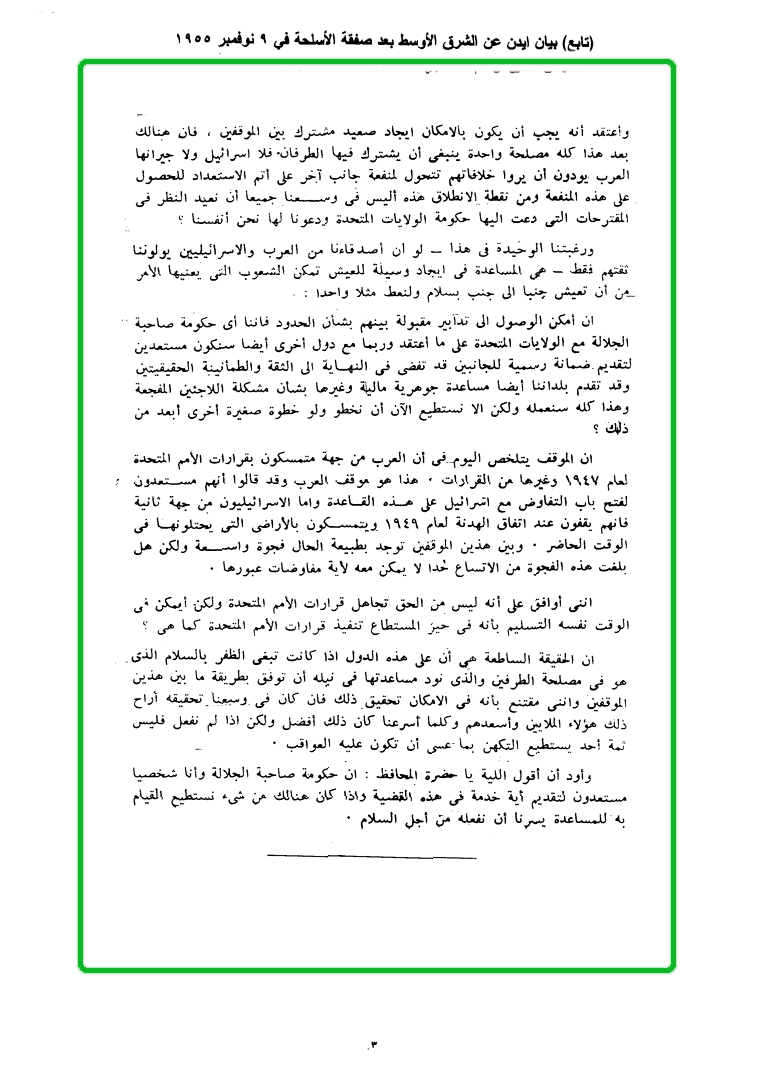 (تابع) بيان ايدن عن الشرق الأوسط بعد صفقة الأسلحة في ٩ نوفمبر ١٩٥٥
وأعتقد أنه يجب أن يكون بالامكان ايجاد صعيد مشترك بين الموقفين ، فان هنالك
بعد هذا كله مصلحة واحدة ينبغى أن يشترك فيها الطرفان فلا اسرائيل ولا جيرانها
العرب يودون أن يروا خلافاتهم تتحول لمنفعة جانب آخر على أتم الاستعداد للحصول
على هذه المنفعة ومن نقطة الانطلاق هذه أليس فى وســعنا جميعا أن نعيد النظر فى
المقترحات التى دعت اليها حكومة الولايات المتحدة ودعونا لها نحن أنفسنا ؟
ورغبتنا الوحيدة فى هذا – لو أن أصدقاءنا من العرب والاسرائيليين يولوننا
ثقتهم فقط – هى المساعدة فى ايجاد وسيلة للعيش تمكن الشعوب التى يعنيها الأمر
من أن تعيش جنبا الى جنب بسلام ولنعط مثلا واحدا : .
ان أمكن الوصول الى تدابير مقبولة بينهم بشأن الحدود فاننا أى حكومة صاحبة
الجلالة مع الولايات المتحدة على ما أعتقد وربما مع دول أخرى أيضا سنكون مستعدين
لتقديم ضمانة رسمية للجانبين قد تفضى فى النهاية الى الثقة والطمأنينة الحقيقيتين
وقد تقدم بلداننا أيضا مساعدة جوهرية مالية وغيرها بشأن مشكلة اللاجئين المفجعة
وهذا كله سنعمله ولكن الا نستطيع الآن أن نخطو ولو خطوة صغيرة أخرى أبعد من
ذلك ؟
ان الموقف يتلخص اليوم فى أن العرب من جهة متمسكون بقرارات الأمم المتحدة
لعام ١٩٤٧ وغيرها من القرارات ٠ هذا هو موقف العرب وقد قالوا أنهم مســتعدون
لفتح باب التفاوض مع اسرائيل على هــذه القــاعدة واما الاسرائيليون من جهة ثانية
فانهم يقفون عند اتفاق الهدنة لعام ١٩٤٩ ويتمسـكون بالأراضى التى يحتلونهــا فى
الوقت الحاضر ٠ وبين هذين الموقفين توجد بطبيعة الحال فجوة واســعة ولكن هل
بلغت هذه الفجوة من الاتساع حدا لا يمكن معه لأية مفاوضات عبورها ٠
اننى أوافق على أنه ليس من الحق تجاهل قرارات الأمم المتحدة ولكن أيمكن فى
الوقت نفسه التسليم بأنه فى حيز المستطاع تنفيذ قرارات الأمم المتحدة كما هى ؟
ان الحقيقة الساطعة هى أن على هذه الدول اذا كانت تبغى الظفر بالسلام الذى
هو فى مصلحة الطرفين والذى نود مساعدتها فى نيله أن توفق بطريقة ما بين هذين
الموقفين واننى مقتنع بأنه فى الامكان تحقيق ذلك فان كان فى وسعنا تحقيقه أراح
ذلك هؤلاء الملايين وأسعدهم وكلما أسرعنا كان ذلك أفضل ولكن اذا لم نفعل فليس
ثمة أحد يستطيع التكهن بما عسى أن تكون عليه العواقب ٠
وأود أن أقول اللية يا حضرة المحافظ : ان حكومة صاحبة الجلالة وأنا شخصيا
مستعدون لتقديم أية خدمة فى هذه القضية واذا كان هنالك من شىء نستطيع القيام
به للمساعدة يسرنا أن نفعله من أجل السلام ٠
٣